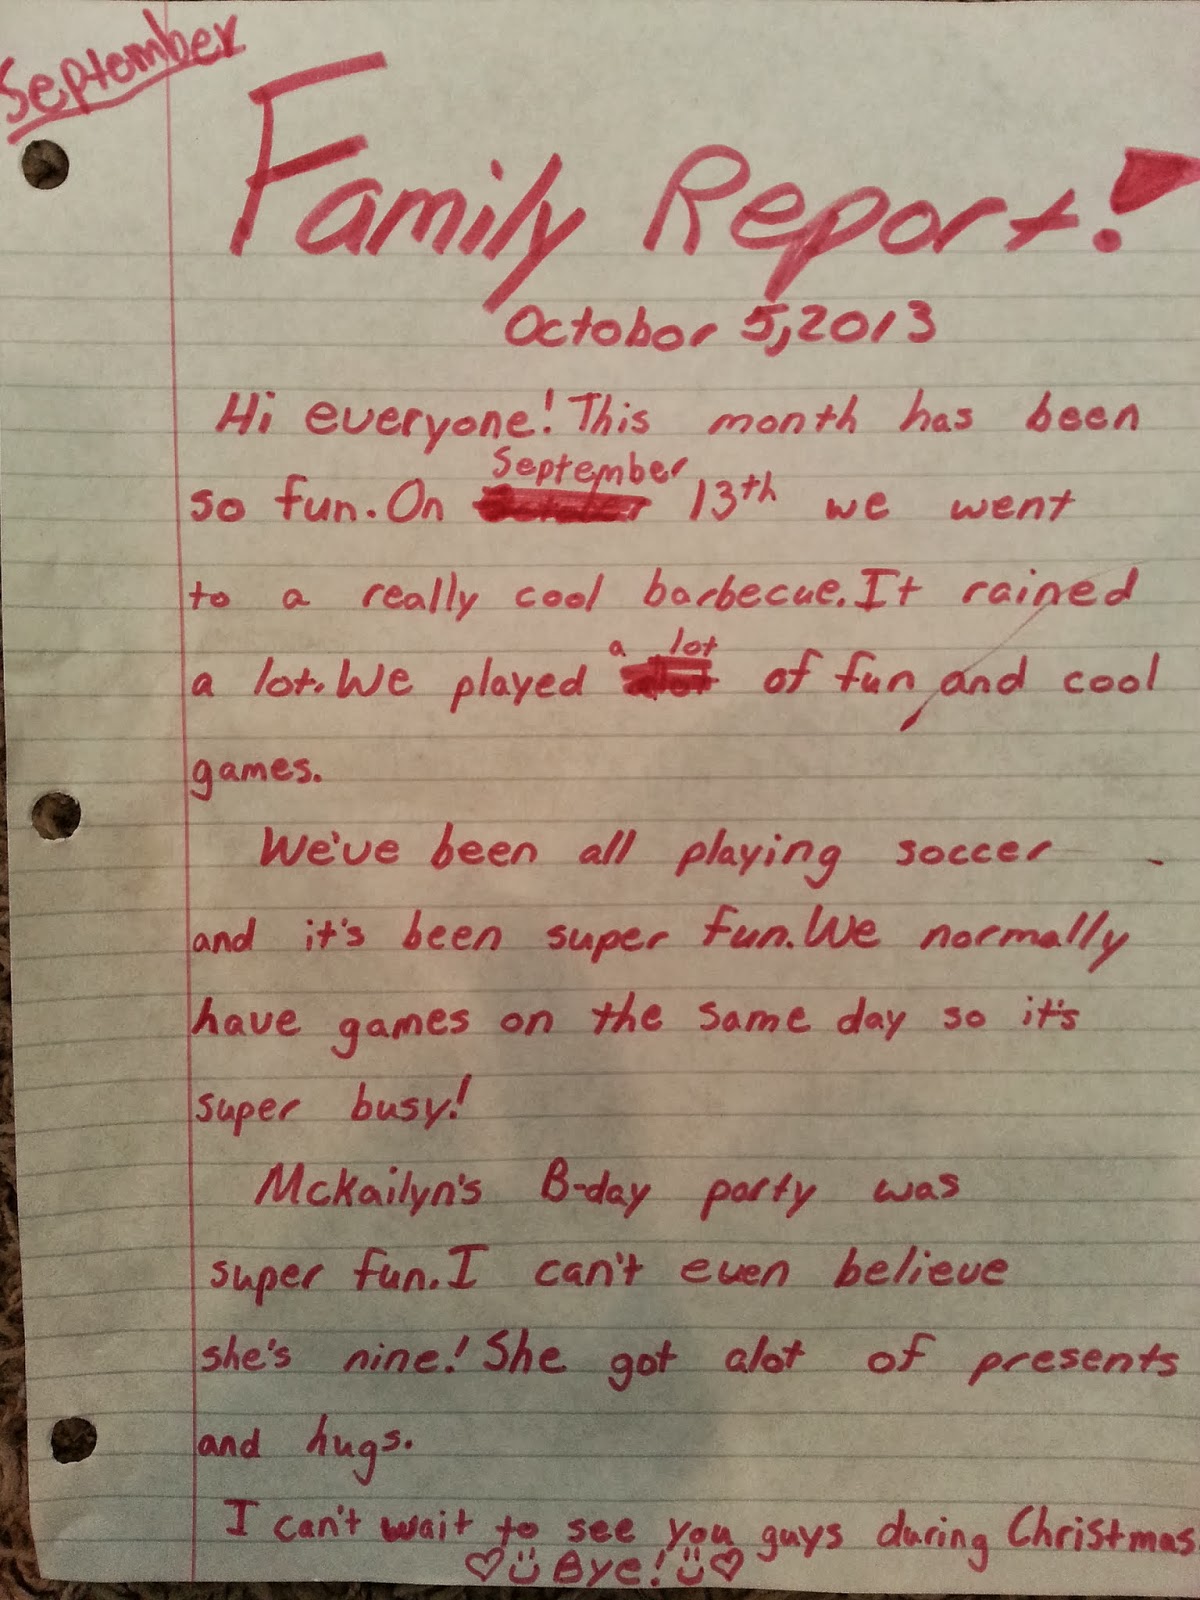 September
Family Report!
October 5, 2013
Hi everyone! This month has been
September
so fun. On October 13th we went
to a really cool barbecue. It rained
a lot
a lot. We played alot of fun and cool
games.
We've been all playing soccer
and it's been super fun. We normally
have games on the same day so it's
super busy!
Mckailyn's B-day party was
super fun. I can't even believe
she's nine! She got alot of presents
and hugs.
I can't wait to see you guys during Christmas
Bye!